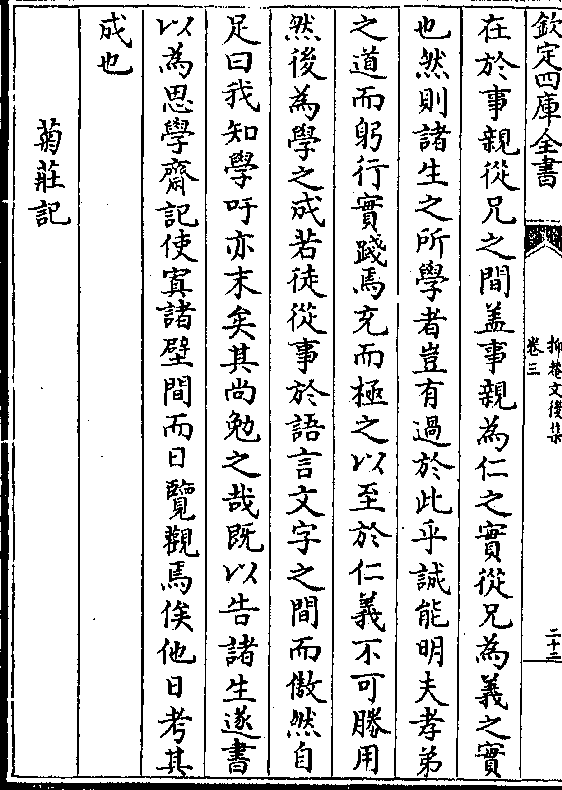 欽定四庫全書
抑菴文後集
卷三
二十二
在於事親從兄之間盖事親為仁之實從兄為義之實
也然則諸生之所學者豈有過於此乎誠能明夫孝弟
之道而躬行實踐焉充而極之以至於仁義不可勝用
然後為學之成若徒從事於語言文字之間而傲然自
足曰我知學吁亦末矣其尚勉之哉既以告諸生遂書
以為思學齋記使寘諸壁間而日覽觀焉俟他日考其
成也
菊莊記